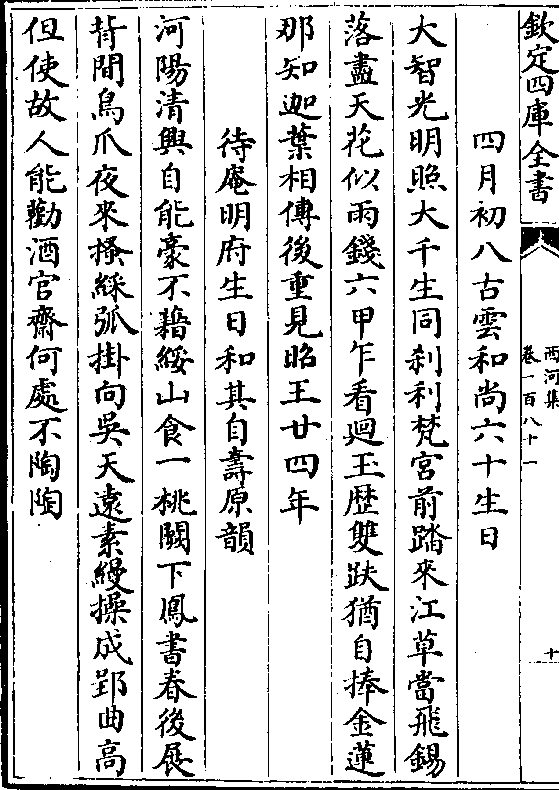 欽定四庫全書
西河集
卷一百八十一
十
四月初八古雲和尚六十生日
大智光明照大千生同刹利梵宮前踏來江草當飛錫
落盡天花似雨錢六甲乍看迴玉歴雙趺猶自捧金蓮
那知迦葉相傳後重見昭王廿四年
待庵明府生日和其自壽原韻
河陽清興自能豪不藉綏山食一桃闕下鳳書春後展
背間鳥爪夜來搔綵弧掛向吳天遠素縵操成郢曲高
但使故人能勸酒官齋何處不陶陶